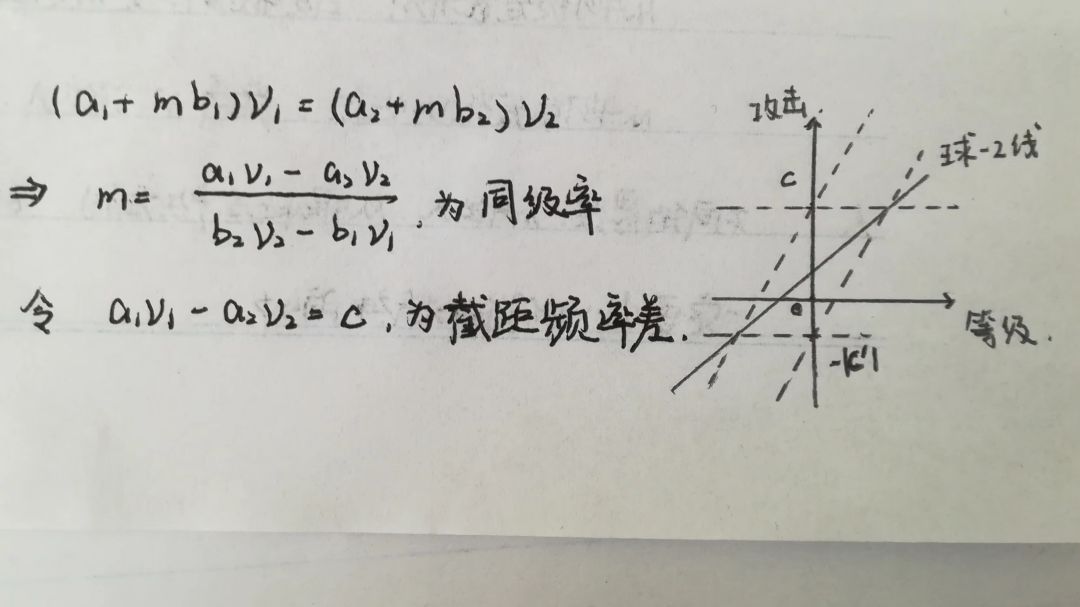 (a₁+mb₁)ν₁=(a₂+mb₂)ν₂
⇒ m= (a₁ν₁-a₂ν₂)/(b₂ν₂-b₁ν₁), 为同级率
令 a₁ν₁-a₂ν₂=c, 为截距频率差.
攻击
球-2线
c
o
等级.
-|c'|